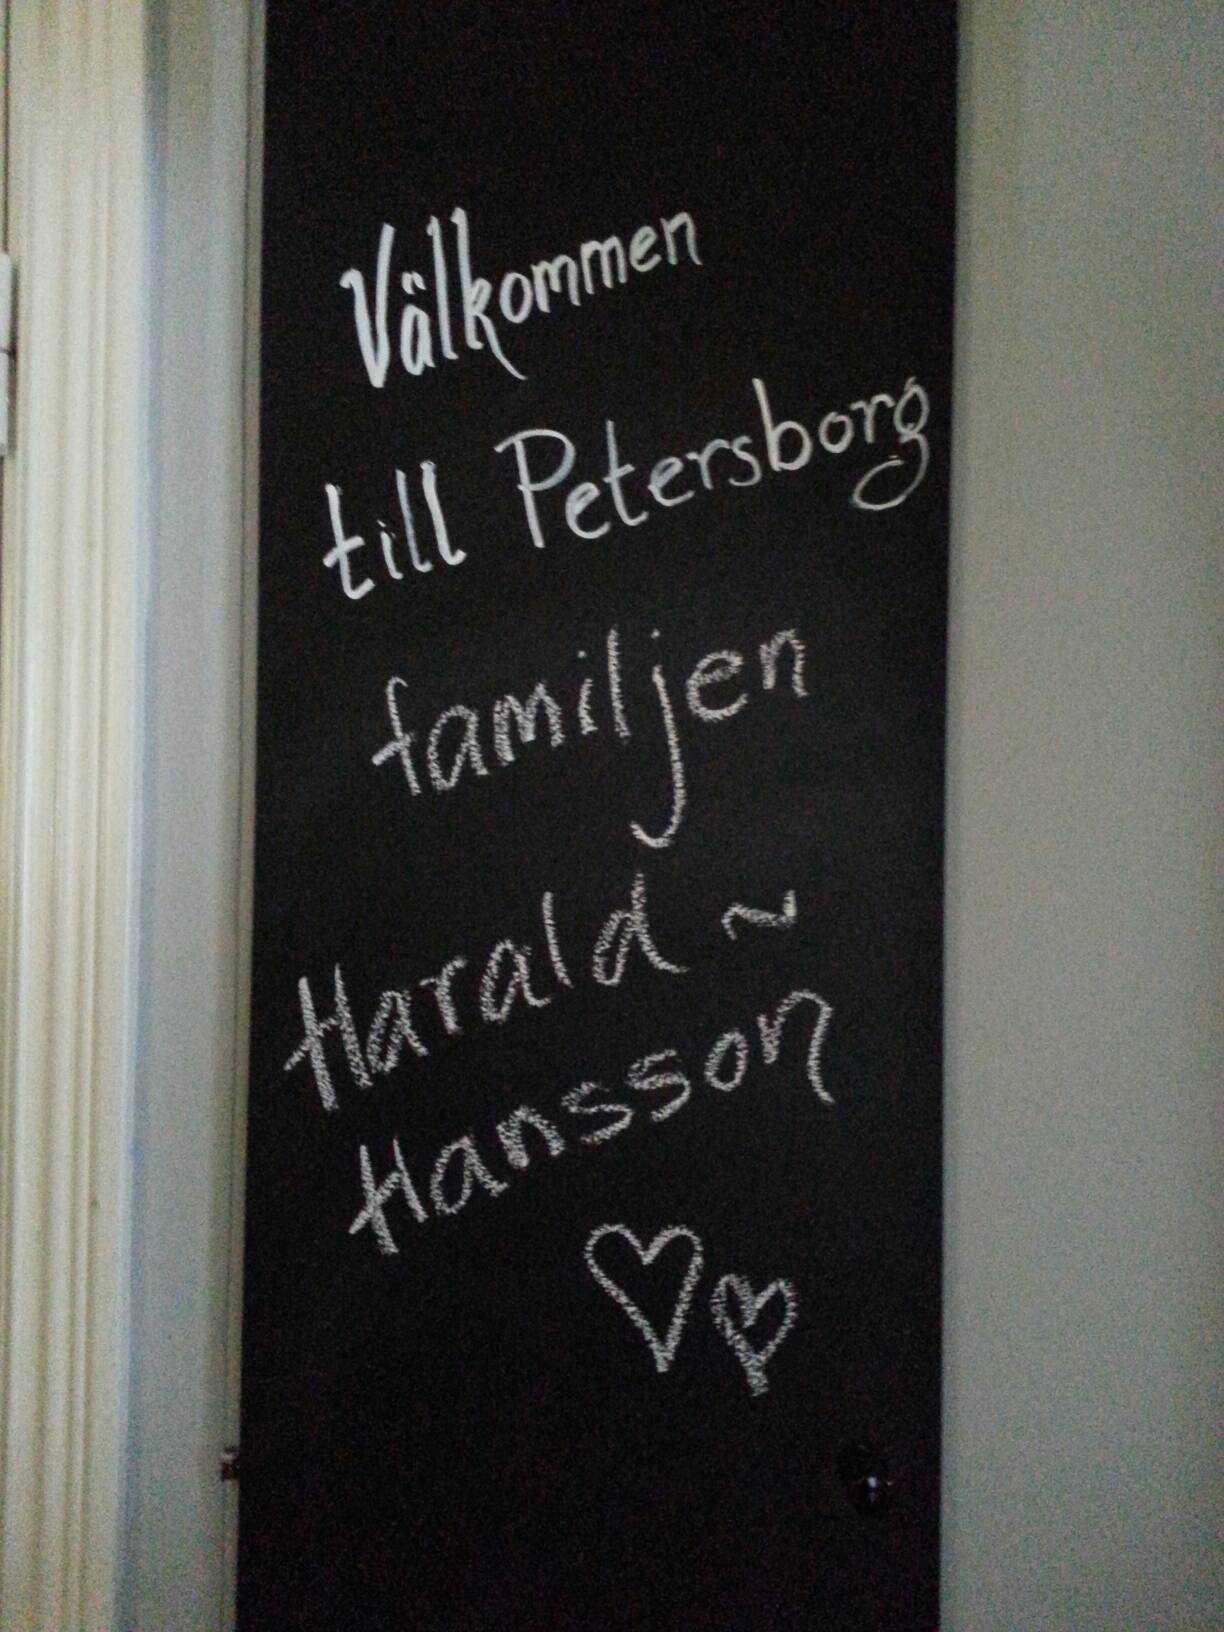 Välkommen
till Petersborg
familjen
Harald ~
Hansson